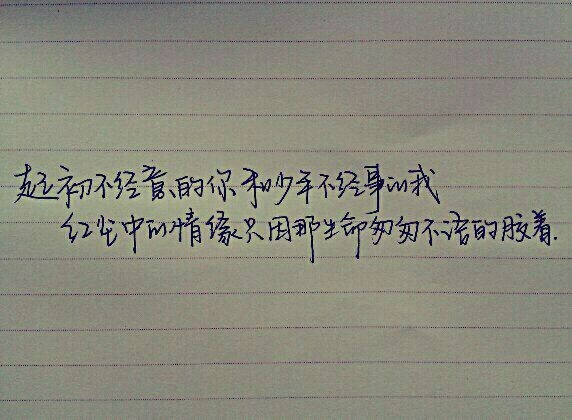 起初不经意的你和少年不经事的我
红尘中的情缘只因那生命匆匆不语的胶着.